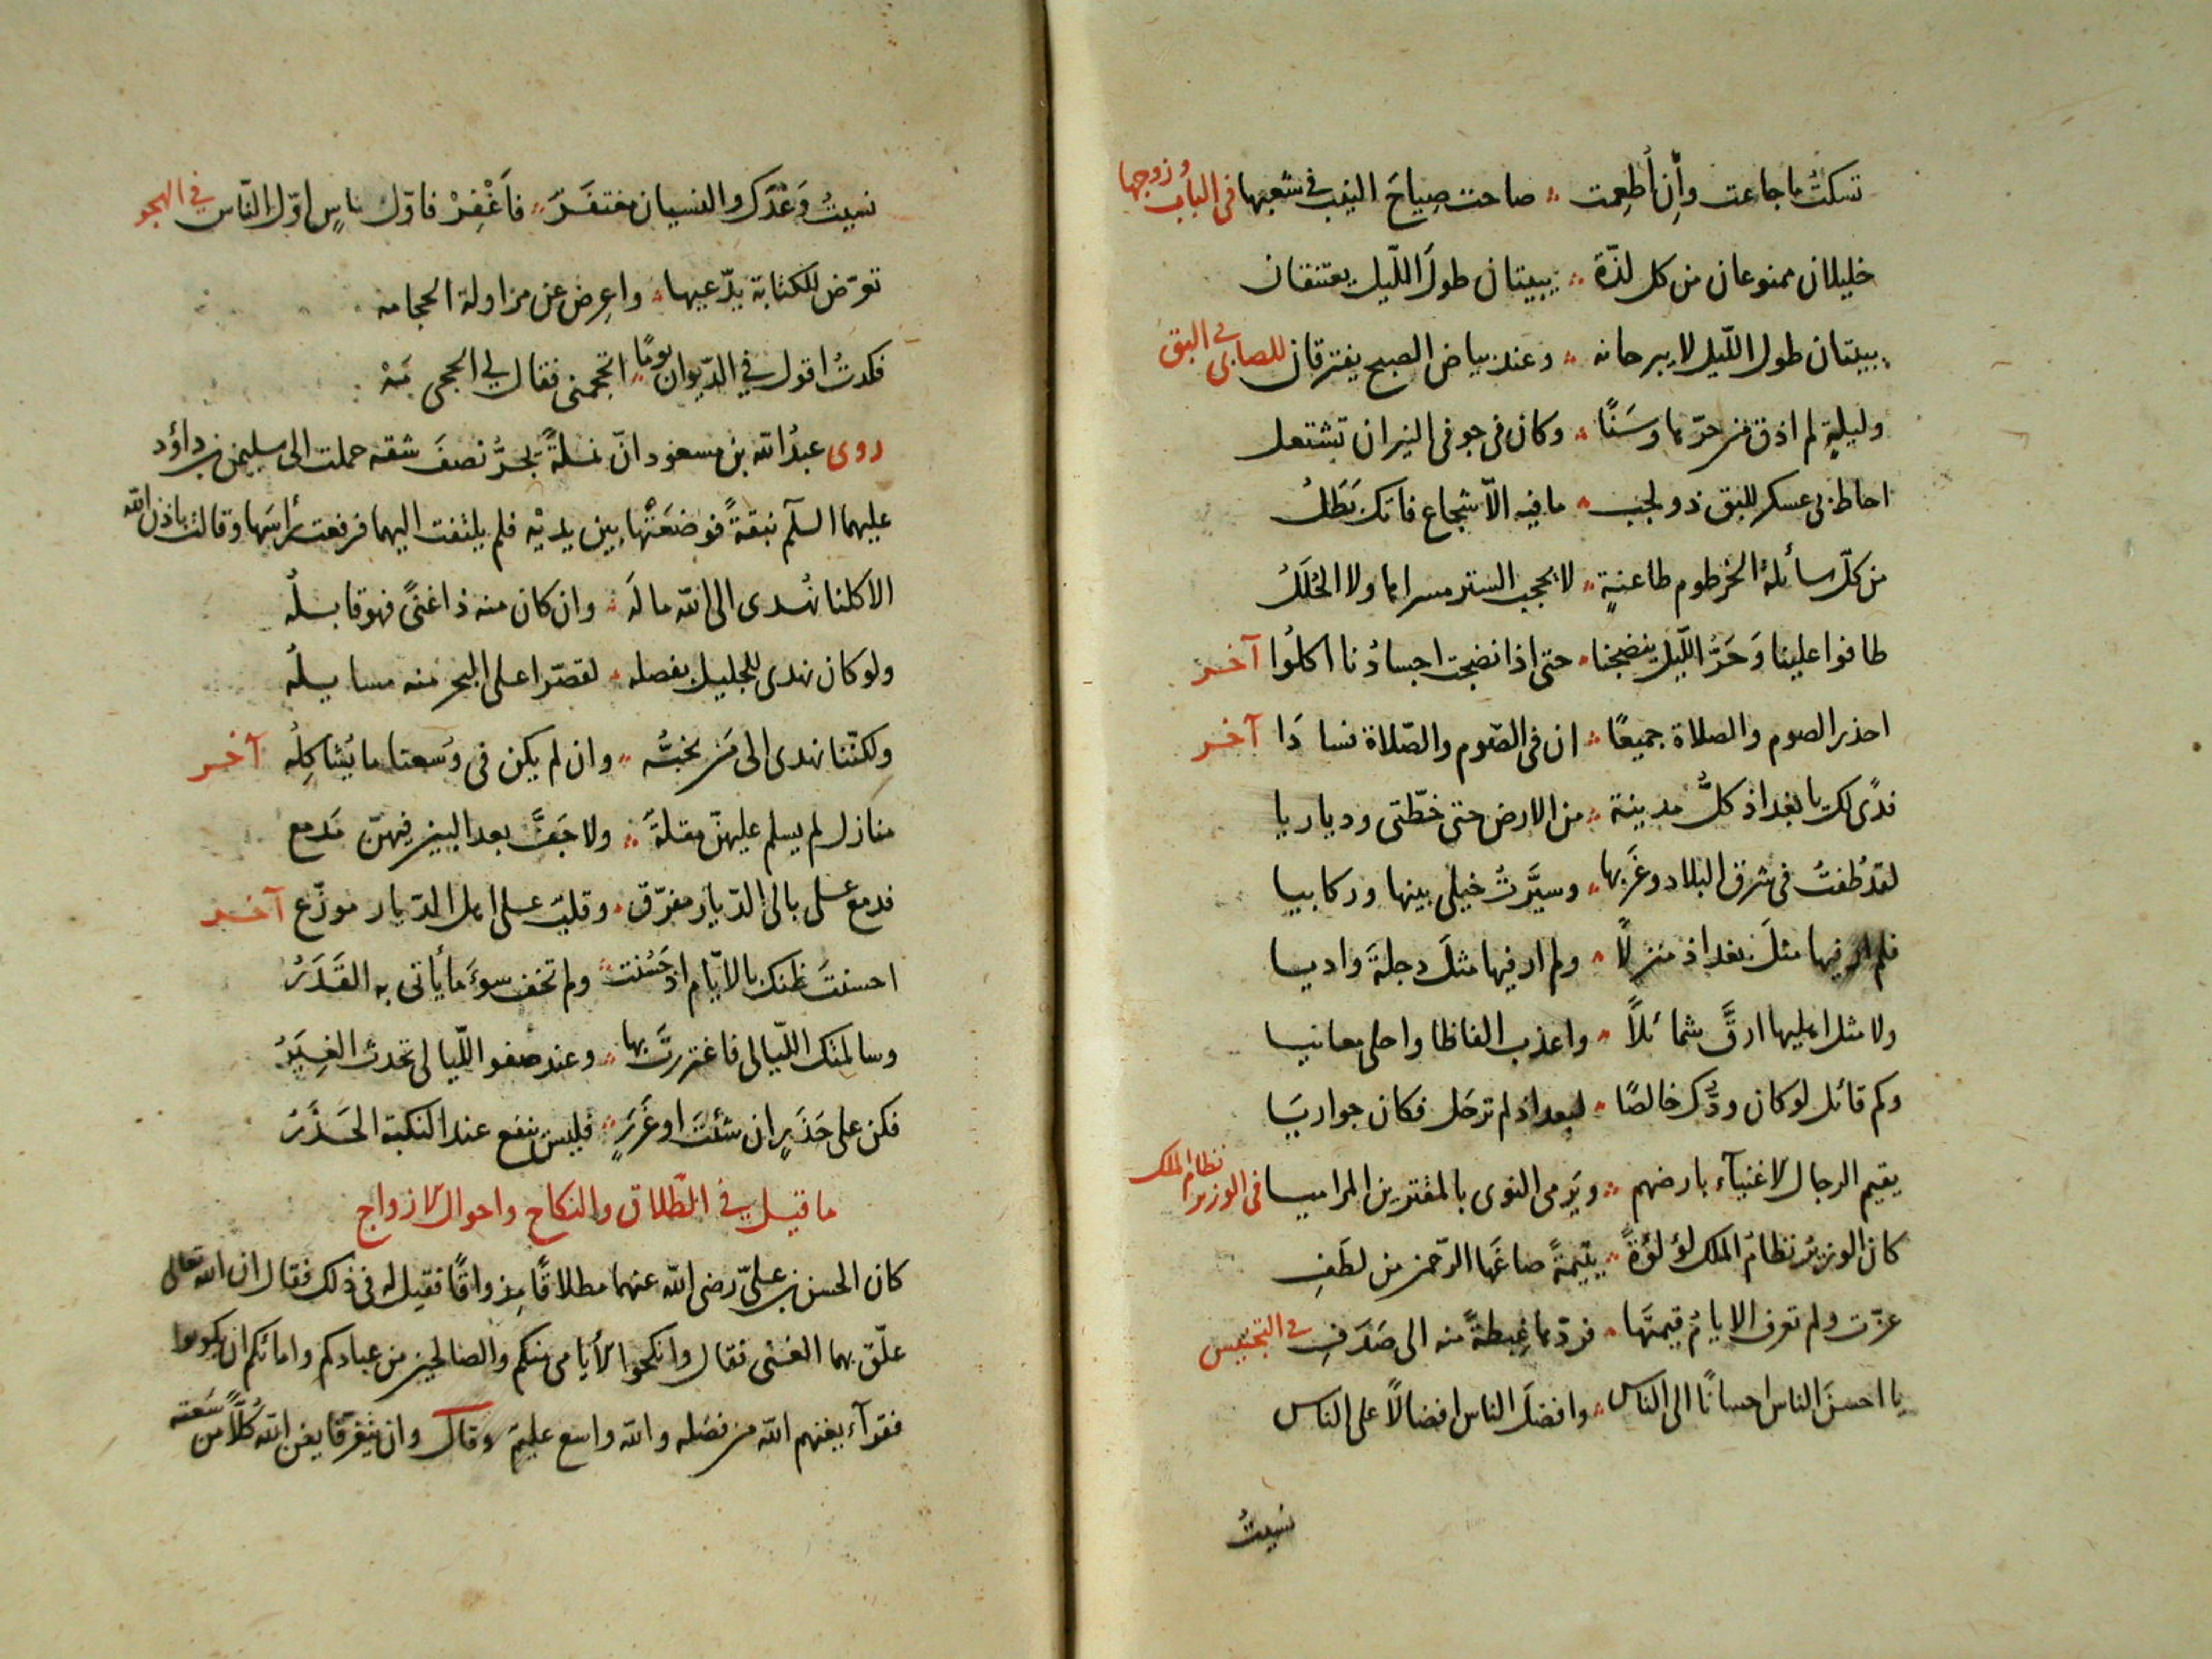 تسكتُ ما جاعت وأن أُطعِمت ؞ صاحت صِياحَ النيب في شعبها في الباب وزوجها
خليلان ممنوعان من كل لذة ؞ يبيتان طولَ اللّيل يعتنقان
يبيتان طول اللّيل لا يبرحانه ؞ وعند بياض الصبح يفترقان للصابى في البق
وليلةٍ لم اذق من حرّها وسَنًا ؞ وكان في جوفي النيران تشتعل
احاط بي عسكر للبق ذو لجب ؞ ما فيه الّا شجاع فاتك بَطَلُ
من كلّ سائلة الخرطوم طاعنةٍ ؞ لا يحجب الستر مسراها ولا الحُلَلُ
طافوا علينا وَحَرُّ اللّيل ينضجنا ؞ حتى اذا نضجت اجسادُنا اكلُوا آخر
احذر الصوم والصلاة جميعًا ؞ ان في الصّوم والصّلاة فسادَا آخر
فدًى لك يا بغداذ كلُّ مدينة ؞ من الارض حتى خطّتي ودياريا
لقد طُفتُ في شرق البلاد وغَربها ؞ وسيَّرتُ خيلي بينها وركابيا
فلم ار فيها مثلَ بغداذ منزلًا ؞ ولم ار فيها مثلَ دجلةَ واديا
ولا مثل اهليها ارقَّ شمائلًا ؞ واعذب الفاظا واحلى معانيا
وكم قائل لو كان ودُّك خالصًا ؞ لبغداذ لم ترحل فكان جوابيَا
يقيم الرجال الاغنيآء بارضهم ؞ ويَرمى النوى بالمقترين المراميا في الوزير نظام الملك
كان الوزيرُ نظامُ الملك لؤلؤةً ؞ يتيمةً صاغَها الرّحمن من لطَفِ
عزّت ولم تعرف الايامُ قيمتَها ؞ فردّها غِبطةً منه الى صَدَفِ في التجنيس
يا احسنَ الناس احسانًا الى الناس ؞ وافضلَ الناس افضالًا على الناس
نسيتُ
نسيتُ وَعْدَك والنسيان مغتفَرٌ ؞ فاَغْفِرْ فاوّل ناسٍ اوّل النّاس في الهجو
تعرّض للكتابة يدّعيها ؞ واعرض عن مزاولة الحجامه
فكدتُ اقول في الدّيوان يومًا ؞ احجمني فقال لي الحجى مَهْ
روى عبدُ الله بن مسعود انّ نملةً تجرُّ نصفَ شقه حملت الى سليمن بن داؤد
عليهما السلم نبقةً فوضعَتْها بين يديْه فلم يلتفت اليهما فرفعت رأسَها وقالت باذن الله
الا كلنا نُهدى الى الله ما لَه ؞ وان كان منه ذا غنًى فهو قابلُه
ولو كان نهدى للجليل بفضله ؞ لقصّر اعلى البحر منه مسايلُه
ولكنّنا نهدى الى من نحبُّه ؞ وان لم يكن في وُسعنا ما يُشاكِلُه آخر
منازل لم يسلم عليهنّ مقلةَ ؞ ولا جَفَّ بعد البين فِيهنّ مَدمع
فدمع على بالى الدّيار مفرّق ؞ وقلبٌ على اهل الدّيار موزّع آخر
احسنتَ ظنك بالايّام اذ حَسُنت ؞ ولم تخف سوءَ ما يأتى به القَدَرُ
وسالمتك اللّيالى فاغتررتَ بها ؞ وعند صفو اللّيالى تحدث الغِيَرُ
فكن على حَذَرٍ ان شئتَ او غَرَرٍ ؞ فليس ينفع عند النكبة الحَذَرُ
ما قيل في الطّلاق والنكاح واحوال الازواج
كان الحسن بن عليّ رضى الله عنهما مطلاقًا مِذواقًا فقيل له في ذلك فقال ان الله تعالى
علّق بهما الغنى فقال وانكحوا الأيامى منكم والصالحين من عبادكم وامائكم ان يكونوا
فقرآء يغنهم الله من فضله والله واسع عليم وقال وان يتفرّقا يغن الله كُلًّا من سَعته